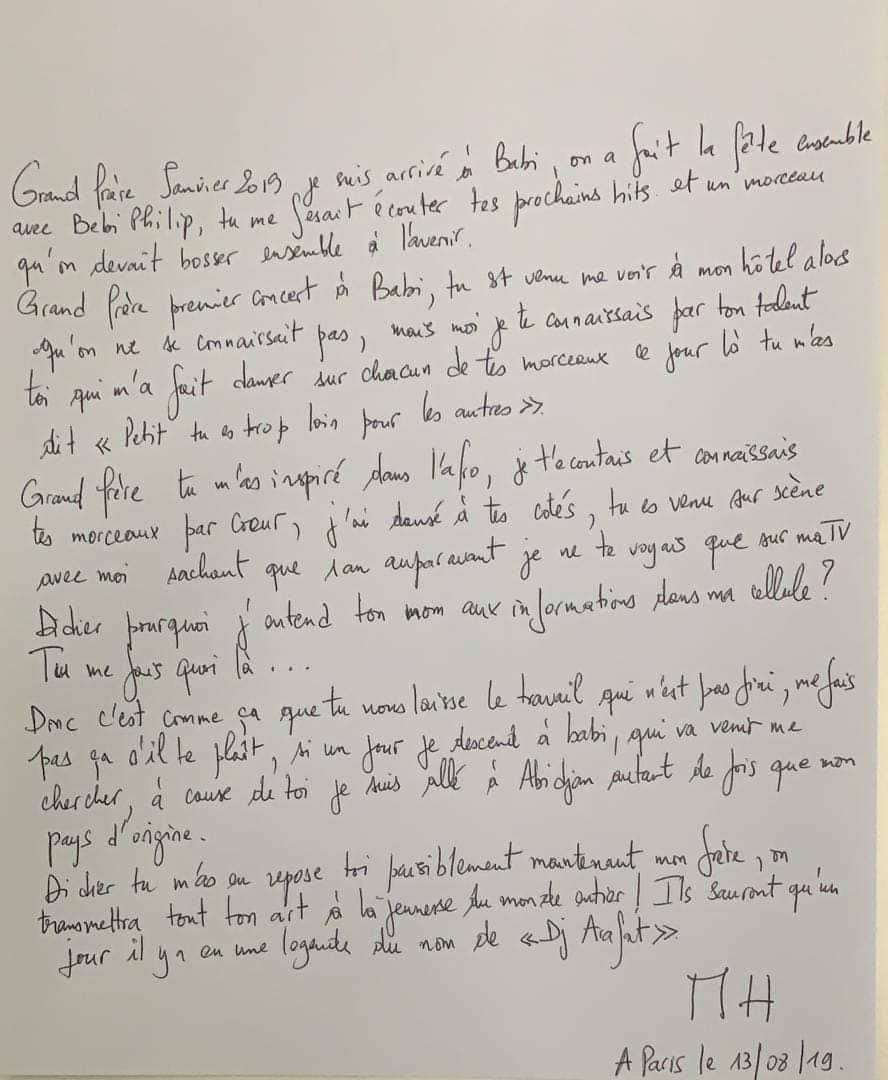 Grand frère Janvier 2019 je suis arrivé à Babi, on a fait la fête ensemble
avec Bebi Philip, tu me fesait écouter tes prochains hits. et un morceau
qu'on devait bosser ensemble à l'avenir.
Grand frère premier concert à Babi, tu st venu me voir à mon hôtel alors
qu'on ne se connaissait pas, mais moi je te connaissais par ton talent
toi qui m'a fait danser sur chacun de tes morceaux ce jour là tu m'as
dit « Petit tu es trop loin pour les autres »
Grand frère tu m'as inspiré dans l'afro, je t'ecoutais et connaissais
tes morceaux par cœur, j'ai dansé à tes cotés, tu es venu sur scène
avec moi sachant que 1an auparavant je ne te voyais que sur ma TV
Didier pourquoi j'entend ton nom aux informations dans ma cellule ?
Tu me fais quoi là ...
Donc c'est comme ça que tu nous laisse le travail qui n'est pas fini, me fais
pas ça s'il te plaît, si un jour je descend à babi, qui va venir me
chercher, à cause de toi je suis allé à Abidjan autant de fois que mon
pays d'origine.
Didier tu m'as eu repose toi paisiblement maintenant mon frère, on
transmettra tout ton art à la jeunesse du monde entier ! Ils sauront qu'un
jour il y a eu une legende du nom de « Dj Arafat ».
MH
A Paris le 13/08/19.